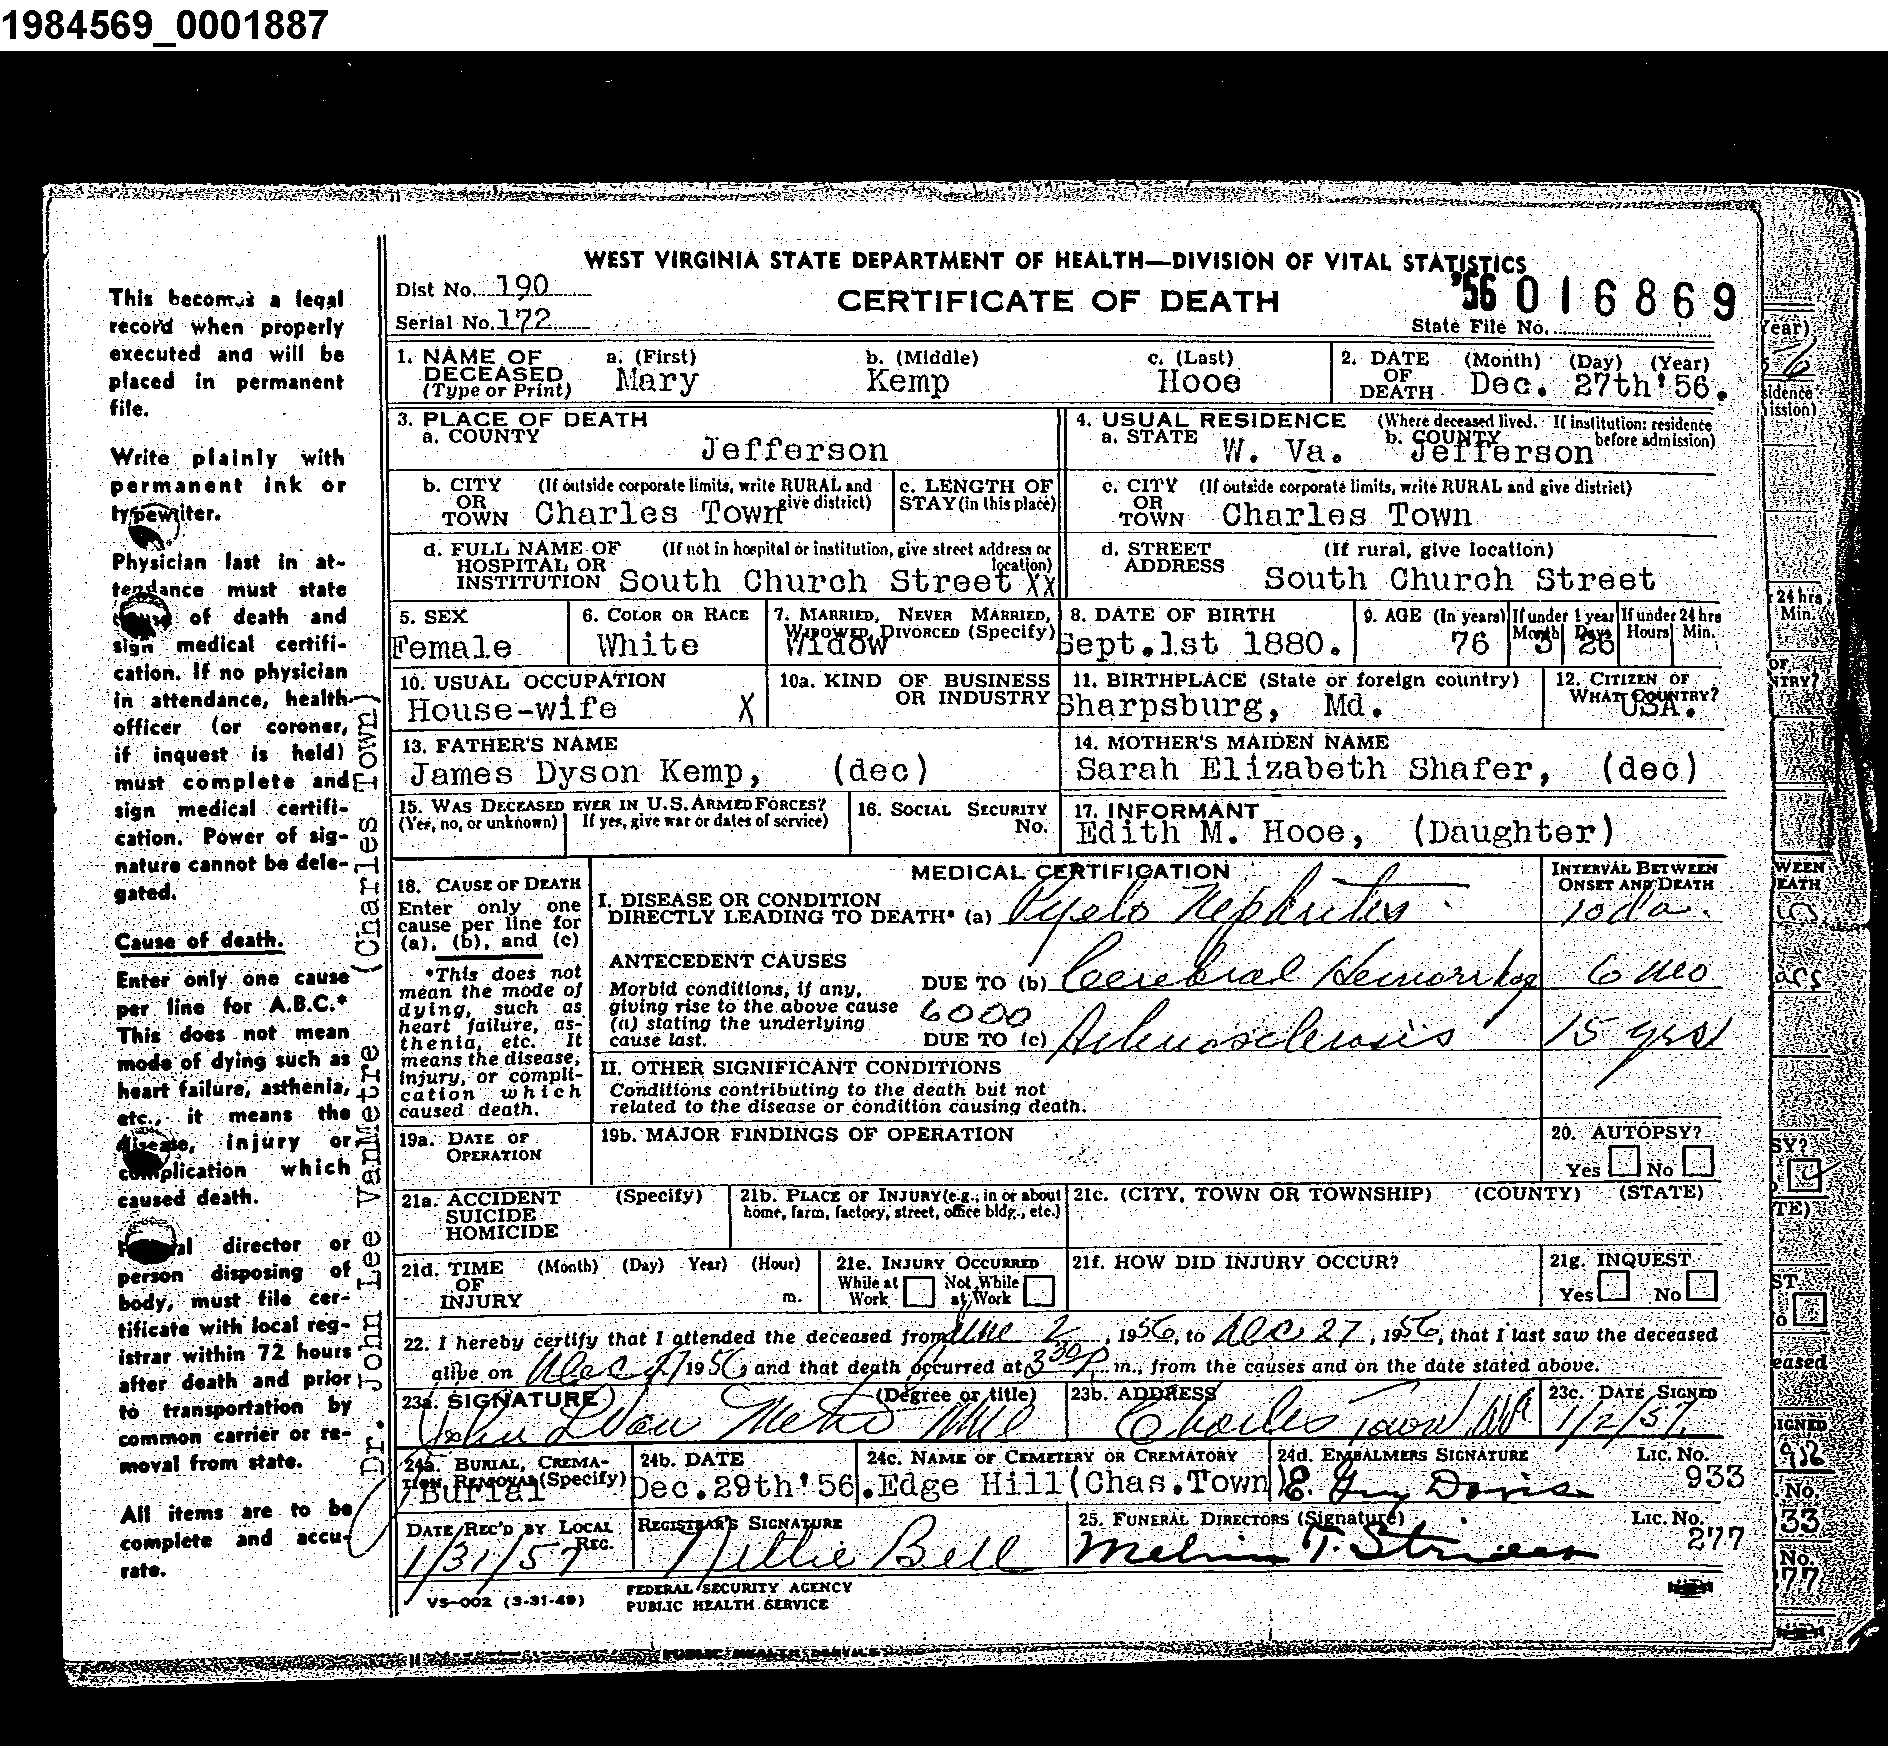 1984569_0001887
WEST VIRGINIA STATE DEPARTMENT OF HEALTH—DIVISION OF VITAL STATISTICS
Dist No. 190
CERTIFICATE OF DEATH
'56 016869
Serial No. 172
State File No.
1. NAME OF DECEASED (Type or Print)
a. (First) Mary
b. (Middle) Kemp
c. (Last) Hooe
2. DATE OF DEATH (Month) (Day) (Year) Dec. 27th'56.
3. PLACE OF DEATH
a. COUNTY Jefferson
4. USUAL RESIDENCE (Where deceased lived. If institution: residence before admission)
a. STATE W. Va.
b. COUNTY Jefferson
b. CITY OR TOWN (If outside corporate limits, write RURAL and give district) Charles Town
c. LENGTH OF STAY (in this place)
c. CITY OR TOWN (If outside corporate limits, write RURAL and give district) Charles Town
d. FULL NAME OF HOSPITAL OR INSTITUTION (If not in hospital or institution, give street address or location) South Church Street XX
d. STREET ADDRESS (If rural, give location) South Church Street
5. SEX Female
6. COLOR OR RACE White
7. MARRIED, NEVER MARRIED, WIDOWED, DIVORCED (Specify) Widow
8. DATE OF BIRTH Sept.1st 1880.
9. AGE (In years) 76
If under 1 year Month 3 Days 26
If under 24 hrs Hours Min.
10. USUAL OCCUPATION House-wife X
10a. KIND OF BUSINESS OR INDUSTRY
11. BIRTHPLACE (State or foreign country) Sharpsburg, Md.
12. CITIZEN OF WHAT COUNTRY? USA.
13. FATHER'S NAME
James Dyson Kemp, (dec)
14. MOTHER'S MAIDEN NAME
Sarah Elizabeth Shafer, (dec)
15. WAS DECEASED EVER IN U.S. ARMED FORCES?
(Yes, no, or unknown) If yes, give war or dates of service)
16. SOCIAL SECURITY No.
17. INFORMANT
Edith M. Hooe, (Daughter)
18. CAUSE OF DEATH
Enter only one cause per line for (a), (b), and (c)
*This does not mean the mode of dying, such as heart failure, asthenia, etc. It means the disease, injury, or complication which caused death.
MEDICAL CERTIFICATION
INTERVAL BETWEEN ONSET AND DEATH
I. DISEASE OR CONDITION DIRECTLY LEADING TO DEATH* (a) Pyelo Nephritis 10 da.
ANTECEDENT CAUSES
Morbid conditions, if any, giving rise to the above cause (a) stating the underlying cause last.
DUE TO (b) Cerebral Hemorrhag 6 mo
6000
DUE TO (c) Arteriosclerosis 15 yrs
II. OTHER SIGNIFICANT CONDITIONS
Conditions contributing to the death but not related to the disease or condition causing death.
19a. DATE OF OPERATION
19b. MAJOR FINDINGS OF OPERATION
20. AUTOPSY?
Yes No
21a. ACCIDENT SUICIDE HOMICIDE (Specify)
21b. PLACE OF INJURY (e.g., in or about home, farm, factory, street, office bldg., etc.)
21c. (CITY, TOWN OR TOWNSHIP) (COUNTY) (STATE)
21d. TIME OF INJURY (Month) (Day) Year) (Hour) m.
21e. INJURY OCCURRED
While at Work Not While at Work
21f. HOW DID INJURY OCCUR?
21g. INQUEST
Yes No
22. I hereby certify that I attended the deceased from June 2, 1956, to Dec 27, 1956, that I last saw the deceased
alive on Dec 27 1956, and that death occurred at 3 30 P. m., from the causes and on the date stated above.
23a. SIGNATURE (Degree or title)
John L Van Metre
23b. ADDRESS
Charles Town
23c. DATE SIGNED
1/2/57
24a. BURIAL, CREMATION REMOVAL (Specify) Burial
24b. DATE Dec.29th'56.
24c. NAME OF CEMETERY OR CREMATORY Edge Hill(Chas.Town)
24d. EMBALMERS SIGNATURE E. Guy Davis
Lic. No. 933
DATE REC'D BY LOCAL REG. 1/31/57
REGISTRAR'S SIGNATURE Nellie Bell
25. FUNERAL DIRECTORS (Signature) Melvin T. Strider
Lic. No. 277
VS-002 (3-31-49)
FEDERAL SECURITY AGENCY
PUBLIC HEALTH SERVICE
This becomes a legal
record when properly
executed and will be
placed in permanent
file.
Write plainly with
permanent ink or
typewriter.
Physician last in at-
tendance must state
cause of death and
sign medical certifi-
cation. If no physician
in attendance, health
officer (or coroner,
if inquest is held)
must complete and
sign medical certifi-
cation. Power of sig-
nature cannot be dele-
gated.
Cause of death.
Enter only one cause
per line for A.B.C.*
This does not mean
mode of dying such as
heart failure, asthenia,
etc., it means the
disease, injury or
complication which
caused death.
Funeral director or
person disposing of
body, must file cer-
tificate with local reg-
istrar within 72 hours
after death and prior
to transportation by
common carrier or re-
moval from state.
All items are to be
complete and accu-
rate.
Dr. John Lee VanMetre (Charles Town)